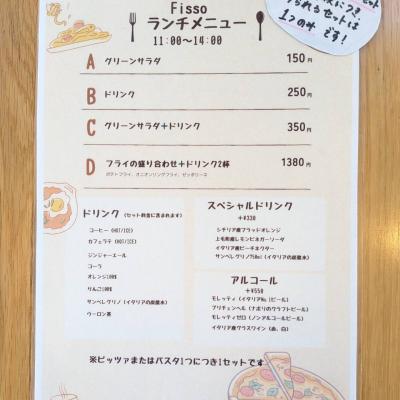 Fisso
ランチメニュー
11:00～14:00
られるセットは
1つのみ
です!
セット
A グリーンサラダ 150円
B ドリンク 250円
C グリーンサラダ+ドリンク 350円
D フライの盛り合わせ+ドリンク2杯 1380円
ポテトフライ、オニオンリングフライ、ゼッポリーネ
ドリンク (セット料金に含まれます)
コーヒー (HOT/ICE)
カフェラテ (HOT/ICE)
ジンジャーエール
コーラ
オレンジ100%
りんご100%
サンペレグリノ (イタリアの炭酸水)
ウーロン茶
スペシャルドリンク
+¥330
シチリア産ブラッドオレンジ
上毛和産レモンビネガーソーダ
イタリア産ピーチネクター
サンペレグリノ750ml (イタリアの炭酸水)
アルコール
+¥550
モレッティ (イタリアNo.1ビール)
ブリチェンヘル (ナポリのクラフトビール)
モレッティゼロ (ノンアルコールビール)
イタリア産グラスワイン (赤、白)
※ピッツァまたはパスタ1つにつき1セットです